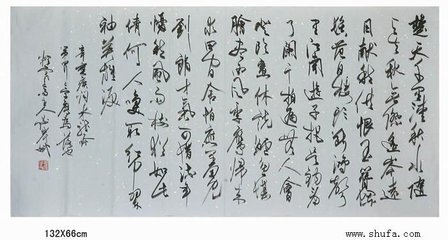 楚天千里清秋水随
天去秋无际遥岑远
目献愁供恨玉簪螺
髻落日楼头断鸿声
里江南游子把吴钩看
了阑干拍遍无人会
登临意休说鲈鱼堪
脍尽西风季鹰归未
求田问舍怕应羞见
刘郎才气可惜流年
忧愁风雨树犹如此
倩何人唤取红巾翠
袖揾英雄泪
辛弃疾词水龙吟
132X66cm
www.shufa.com